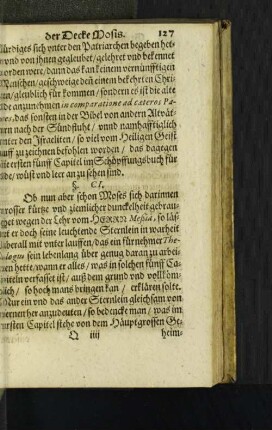 der Decke Mosis. 127
würdiges sich unter den Patriarchen begeben het-
und von ihnen gegleubet/ gelehret und bekennet
worden were/ dann das kan keinem vernünfftigen
Menschen/ geschweige den einem bekehrten Chri-
glenblich für kommen/ sondern es ist die alte
de anzunehmen in comparatione ad cateros Pa-
das sonsten in der Bibel von andern Altvät-
ern nach der Sündfluht/ unnd namhafftiglich
unter den Israeliten/ so viel vom Heiligen Geist
auff zu zeichnen befohlen worden/ das dagegen
die ersten fünff Capitel im Schöpffungsbuch für
wüst und leer an zu sehen sind.
§. CI.
Ob nun aber schon Moses sich darinnen
grosser kürtze und ziemlicher dunckelheit gebrau-
chet wegen der Lehr vom HERRN Messia, so läs-
er doch seine leuchtende Sternlein in warheit
überall mit unter lauffen/ das ein fürnehmer The-
ologus sein lebenlang über genug daran zu arbei-
ten hette/ wann er alles/ was in solchen fünff Ca-
piteln verfasset ist/ auß dem grund und vollköm-
lich/ so hoch mans bringen kan/ erklären solte.
Nur ein und das ander Sternlein gleichsam von
fernen her anzudeuten/ so bedencke man/ was im
ersten Capitel stehe von dem Hauptgrossen Ge-
Q iiij heim-